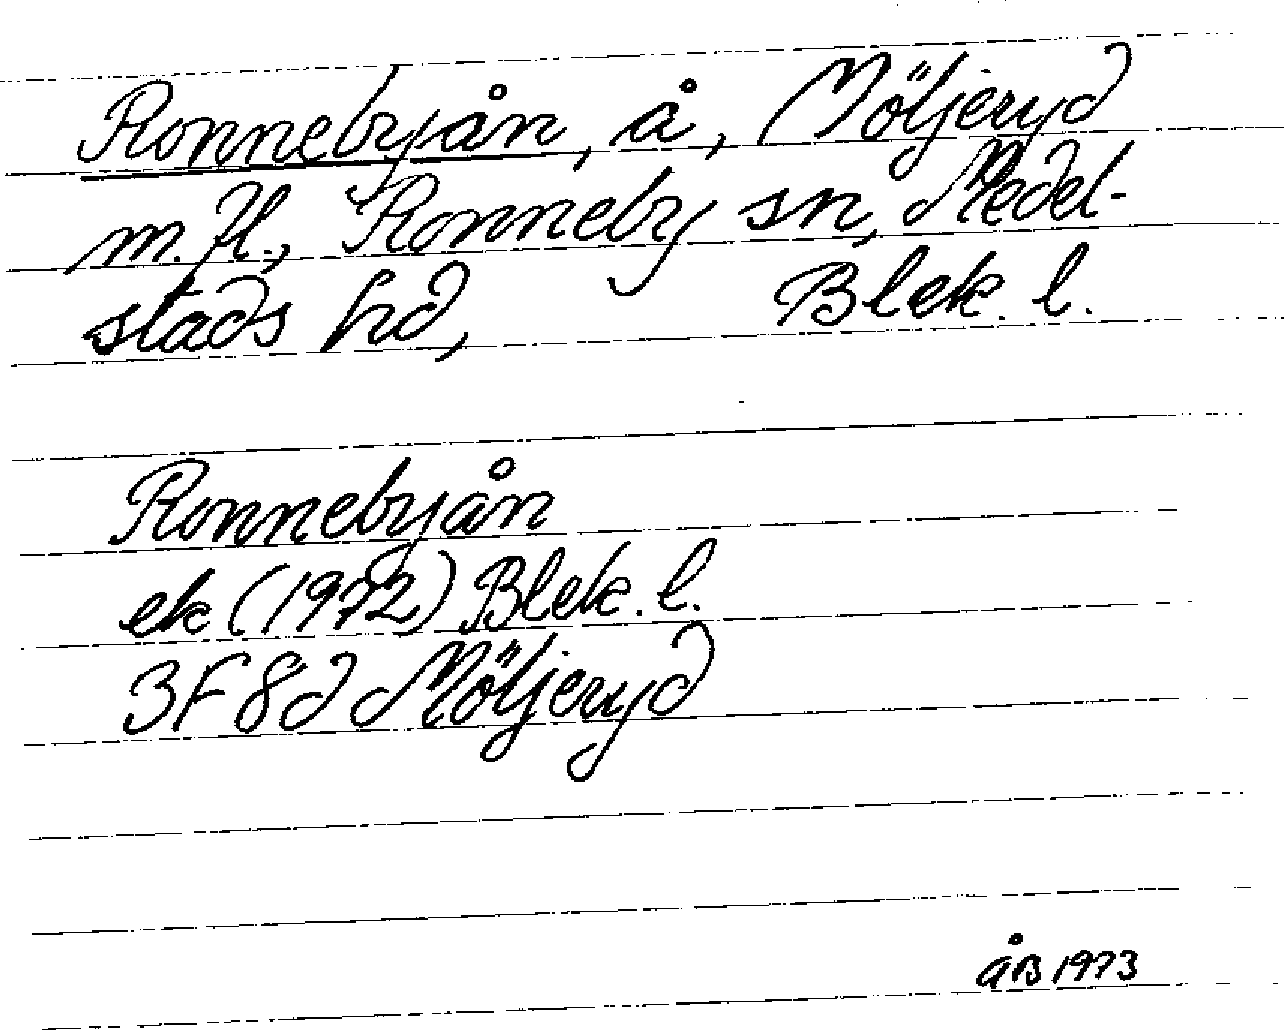 Ronnebyån, å, Möljeryd
m.fl., Ronneby sn, Medel-
stads hd, Blek. l.
Ronnebyån
ek (1972) Blek. l.
3F8d Möljeryd
åB 1973